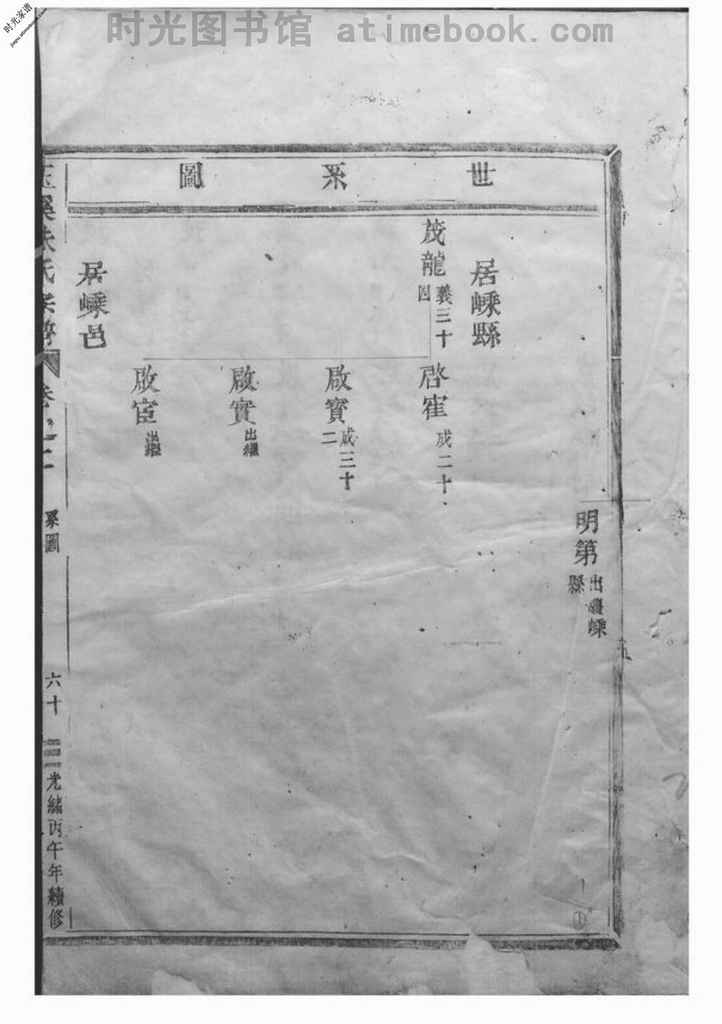 时光图书馆 atimebook.com
时光家谱
世系圖
明第 出繼嵊縣
居嵊縣
茂龍 義三十四
啓崔 成二十
啟寳 成三十二
啟實 出繼
啟宦 出繼
居嵊邑
氏宗譜
卷之二
系圖
六十
光緒丙午年續修